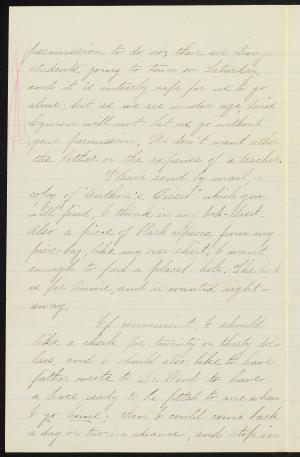 permission to do so; there are always
students going to town on Saturday,
and it is entirely safe for us to go
alone; but as we are under age Miss
Lyman will not let us go without
your permission. We don't want either
the bother or the expense of a teacher.
Please send by mail, a
copy of "Anthon's Cicero" which you
will find, I think in my book-closet.
Also a piece of black alpaca from my
piece-bag, like my over-skirt, I want
enough to face a placet hole. The book
is for Annie, and is wanted right-
away.
If convenient, I should
like a check for twenty or thirty dol-
lars, and I should also like to have
father write to Dr. Wood to have
a brace ready to be fitted to me when
I go home; then I could come back
a day or two in advance, and stop in